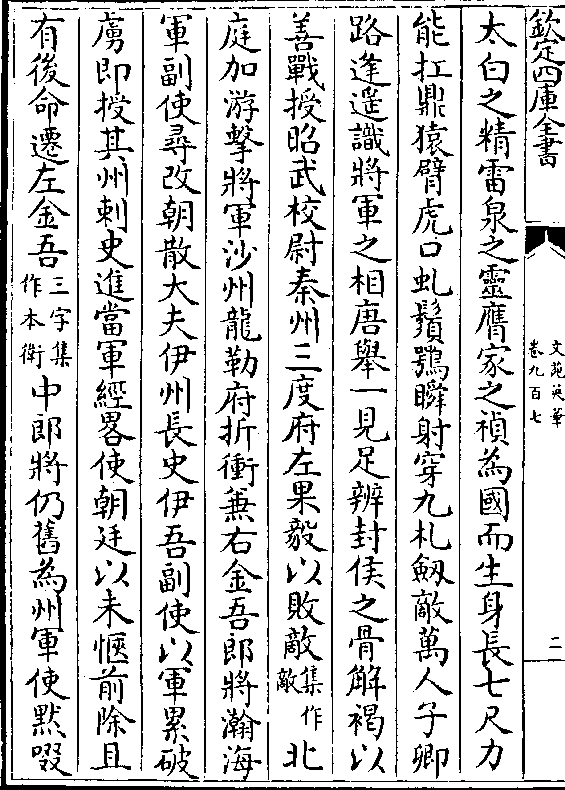 欽定四庫全書
文苑英華
卷九百七
二
太白之精雷泉之靈膺家之禎為國而生身長七尺力
能扛鼎猿臂虎口虬鬚鶚瞬射穿九札劔敵萬人子卿
路逢遥識將軍之相唐舉一見足辨封侯之骨解褐以
善戰授昭武校尉秦州三度府左果毅以敗敵集作敵北
庭加游擊將軍沙州龍勒府折衝兼右金吾郎將瀚海
軍副使尋改朝散大夫伊州長史伊吾副使以軍累破
虜即授其州刺史進當軍經畧使朝廷以未愜前除且
有後命遷左金吾三字集作本衛中郎將仍舊為州軍使黙啜